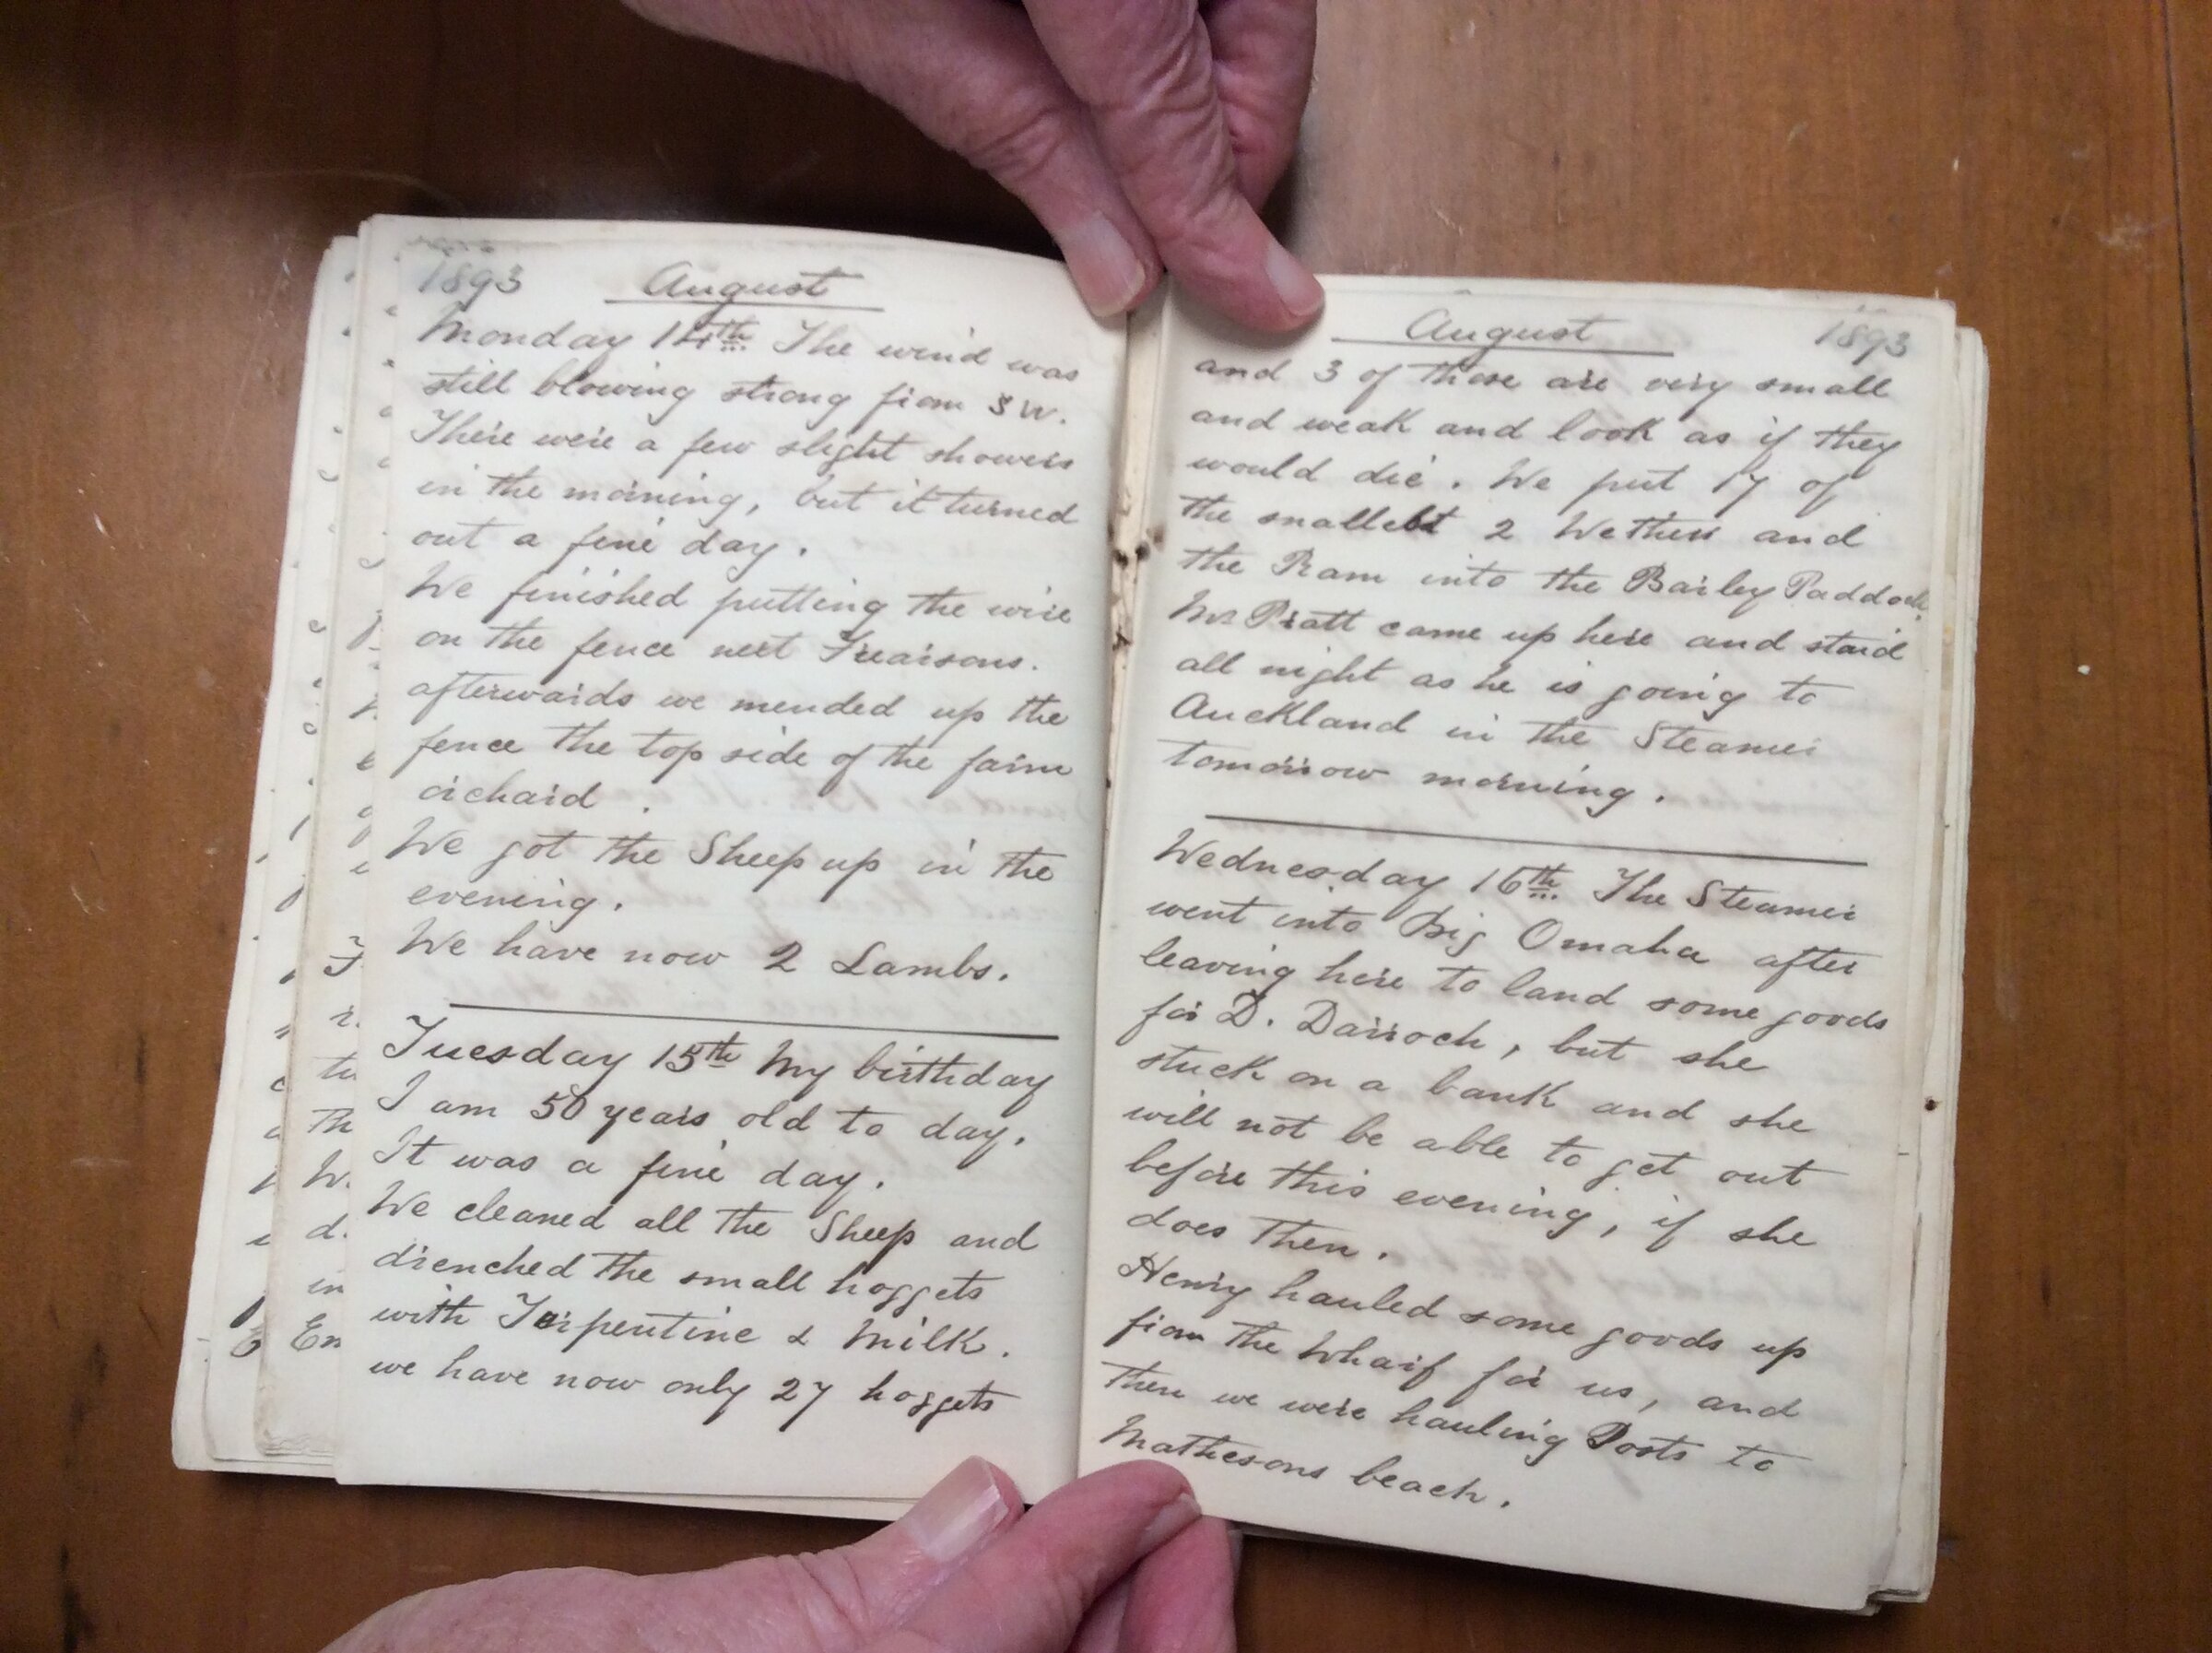 1893 August
Monday 14th The wind was
still blowing strong from SW.
There were a few slight showers
in the morning, but it turned
out a fine day.
We finished putting the wire
on the fence next Frearsons.
afterwards we mended up the
fence the top side of the farm
orchard.
We got the Sheep up in the
evening.
We have now 2 Lambs.
Tuesday 15th My birthday
I am 50 years old to day.
It was a fine day.
We cleaned all the Sheep and
drenched the small hoggets
with Turpentine & Milk.
we have now only 27 hoggets
August 1893
and 3 of those are very small
and weak and look as if they
would die. We put 17 of
the smallest 2 Wethers and
the Ram into the Barley Paddock.
Mr Pratt came up here and staid
all night as he is going to
Auckland in the Steamer
tomorrow morning.
Wednesday 16th The Steamer
went into Big Omaha after
leaving here to land some goods
for D. Darroch, but she
stuck on a bank and she
will not be able to get out
before this evening, if she
does then.
Henry hauled some goods up
from the Wharf for us, and
then we were hauling Posts to
Mathesons beach.